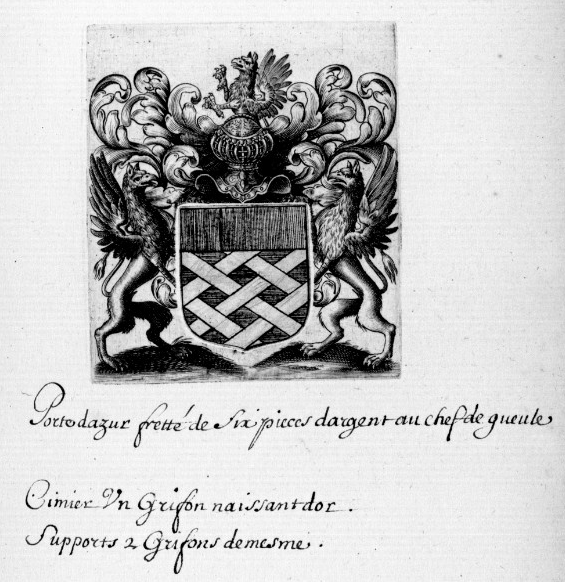 Porte dazur fretté de Six pieces dargent au chef de gueule
Cimier Vn Grifon naissant dor .
Supports 2 Grifons de mesme .